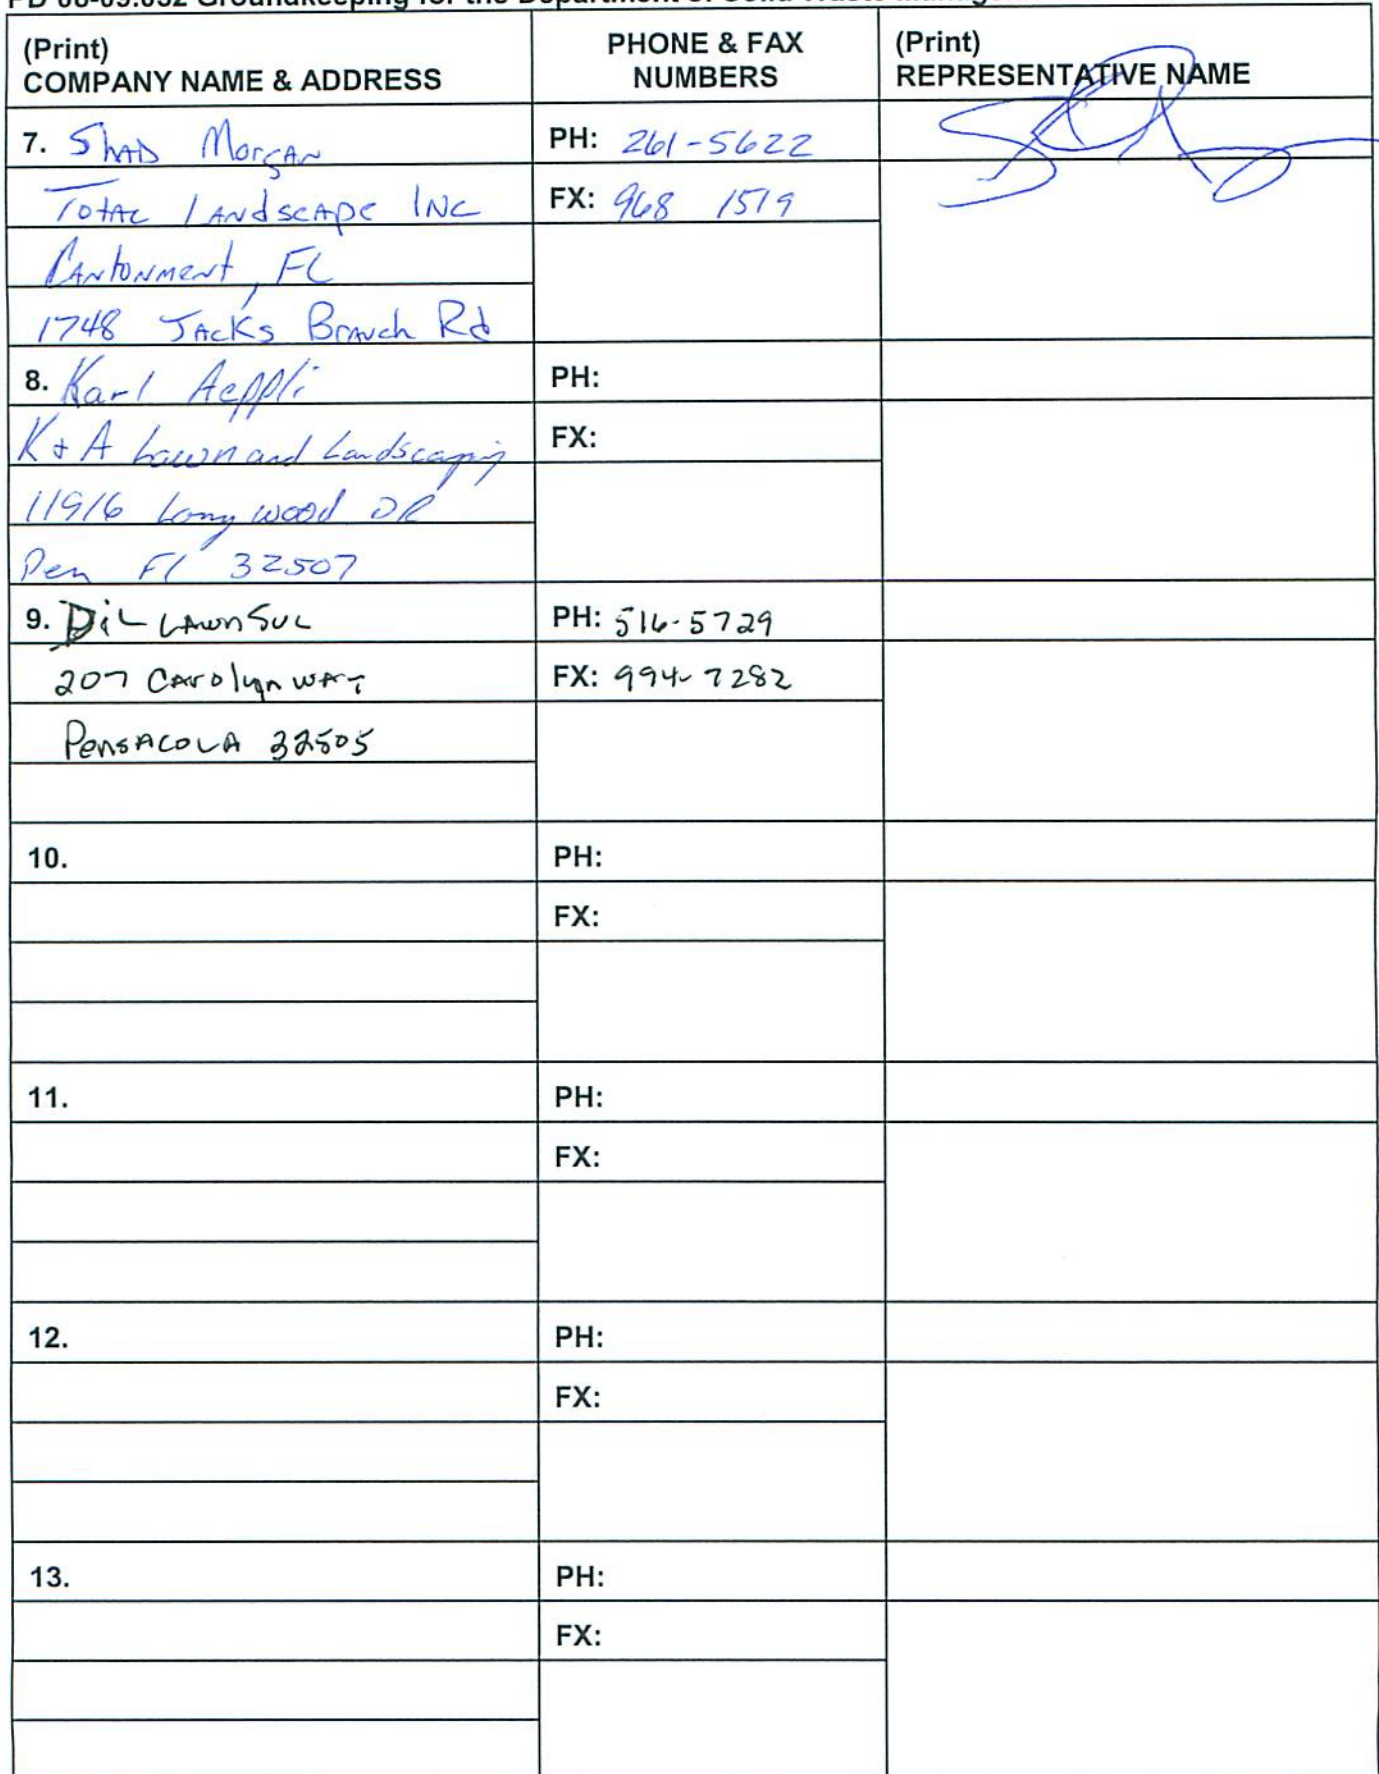 Groundkeeping for the Department of Solid Waste
(Print)
COMPANY NAME & ADDRESS
PHONE & FAX
NUMBERS
(Print)
REPRESENTATIVE NAME
7. Shad Morgan
PH: 261-5622
Total Landscape Inc
FX: 968 1519
Cantonment, FL
1748 Jacks Branch Rd
8. Karl Aeppli
PH:
K & A Lawn and Landscaping
FX:
11916 Longwood DR
Pen Fl 32507
9. DiL Lawn Svc
PH: 516-5729
207 Carolyn Way
FX: 994-7282
Pensacola 32505
10.
PH:
FX:
11.
PH:
FX:
12.
PH:
FX:
13.
PH:
FX: